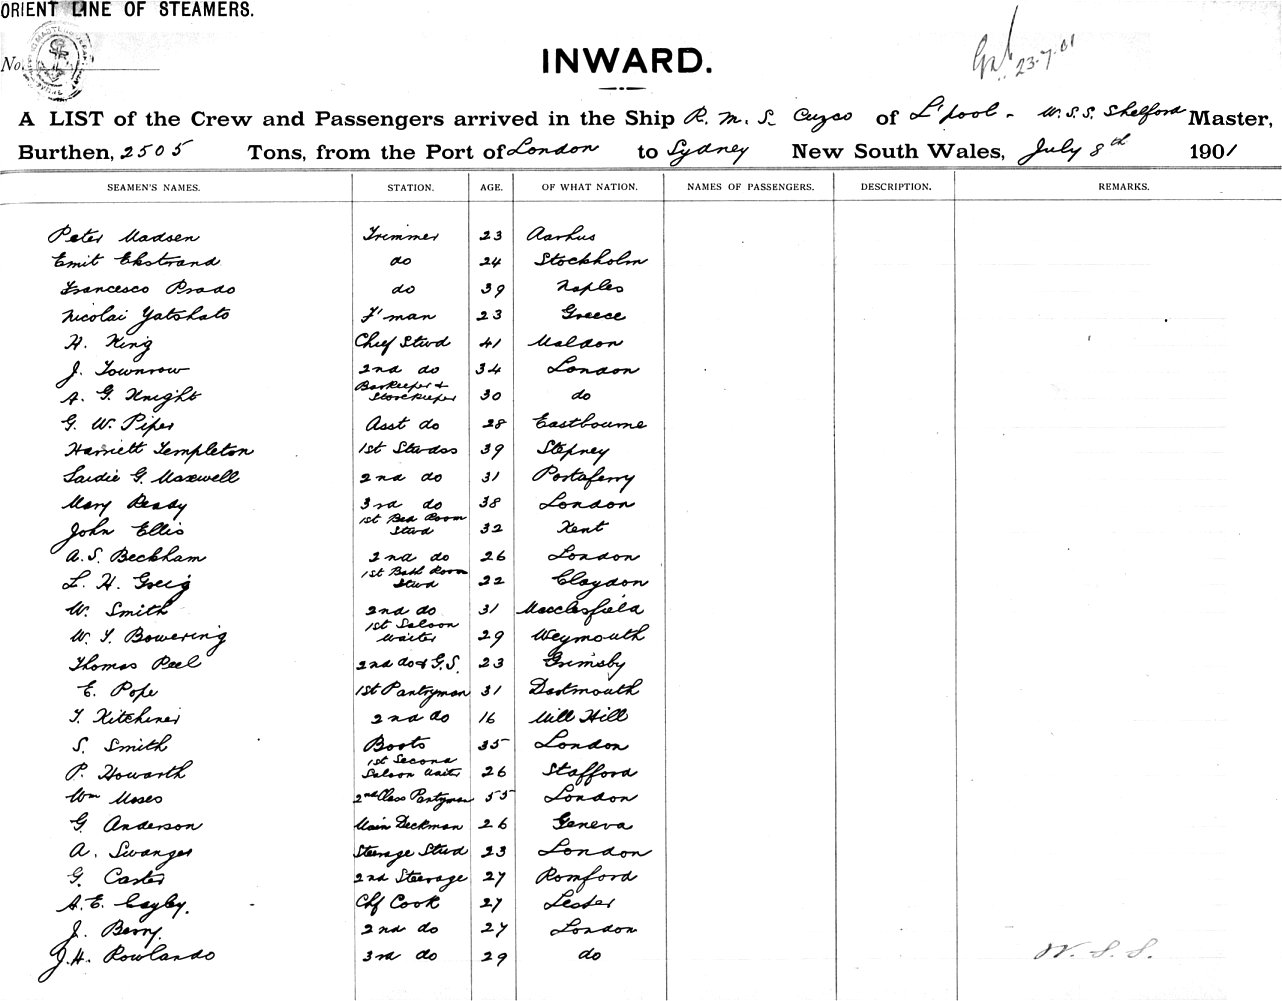 ORIENT LINE OF STEAMERS.
No.
INWARD.
23.7.01
A LIST of the Crew and Passengers arrived in the Ship R. M. S. Cuzco of L'pool - W.S.S. Shelford Master,
Burthen, 2505 Tons, from the Port of London to Sydney New South Wales, July 8th 1901
SEAMEN'S NAMES. STATION. AGE. OF WHAT NATION. NAMES OF PASSENGERS. DESCRIPTION. REMARKS.
Peter Madsen Trimmer 23 Aarhus
Emit Ekstrand do 24 Stockholm
Francesco Prado do 39 Naples
Nicolai Yatshato F'man 23 Greece
H. King Chief Stwd 41 Maldon
J. Townrow 2nd do 34 London
A. G. Knight Barkeeper & Storekeeper 30 do
G. W. Piper Asst do 28 Eastbourne
Harriett Templeton 1st Stwdss 39 Stepney
Saidie G. Maxwell 2nd do 31 Portaferry
Mary Ready 3rd do 38 London
John Ellis 1st Bed Room Stwd 32 Kent
A. S. Beckham 2nd do 26 London
L. H. Greig 1st Bath Room Stwd 22 Claydon
W. Smith 2nd do 31 Macclesfield
W. T. Bowering 1st Saloon Waiter 29 Weymouth
Thomas Peel 2nd do & G.S. 23 Grimsby
E. Pope 1st Pantryman 31 Dartmouth
T. Kitchener 2nd do 16 Mill Hill
S. Smith Boots 35 London
P. Howarth 1st Second Saloon Waiter 26 Stafford
Wm Moses 2nd Class Pantryman 55 London
G. Anderson Main Deckman 26 Geneva
A. Swanger Steerage Stwd 23 London
G. Carter 2nd Steerage 27 Romford
A. E. Cayley. Chf Cook 27 Lester
J. Berry. 2nd do 27 London
J. H. Rowlands 3rd do 29 do
W. S. S.